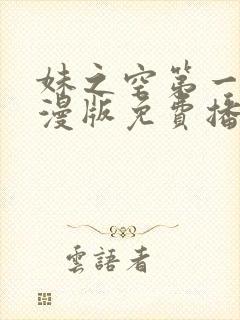 妹之空第一
漫版免費播
雲語者